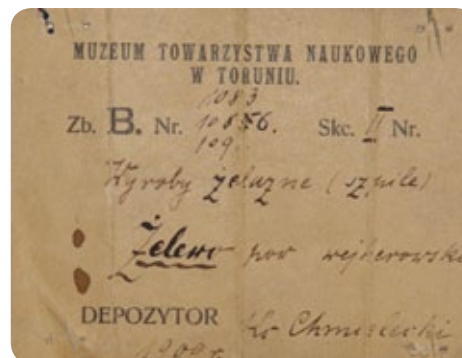 MUZEUM TOWARZYSTWA NAUKOWEGO
W TORUNIU.
1083
Zb. B. Nr. 10856. Skc. II Nr.
109.
Wyroby żelazne (szpile)
Żelewo pow wejherowski
DEPOZYTOR Ks Chmielecki
1909 r